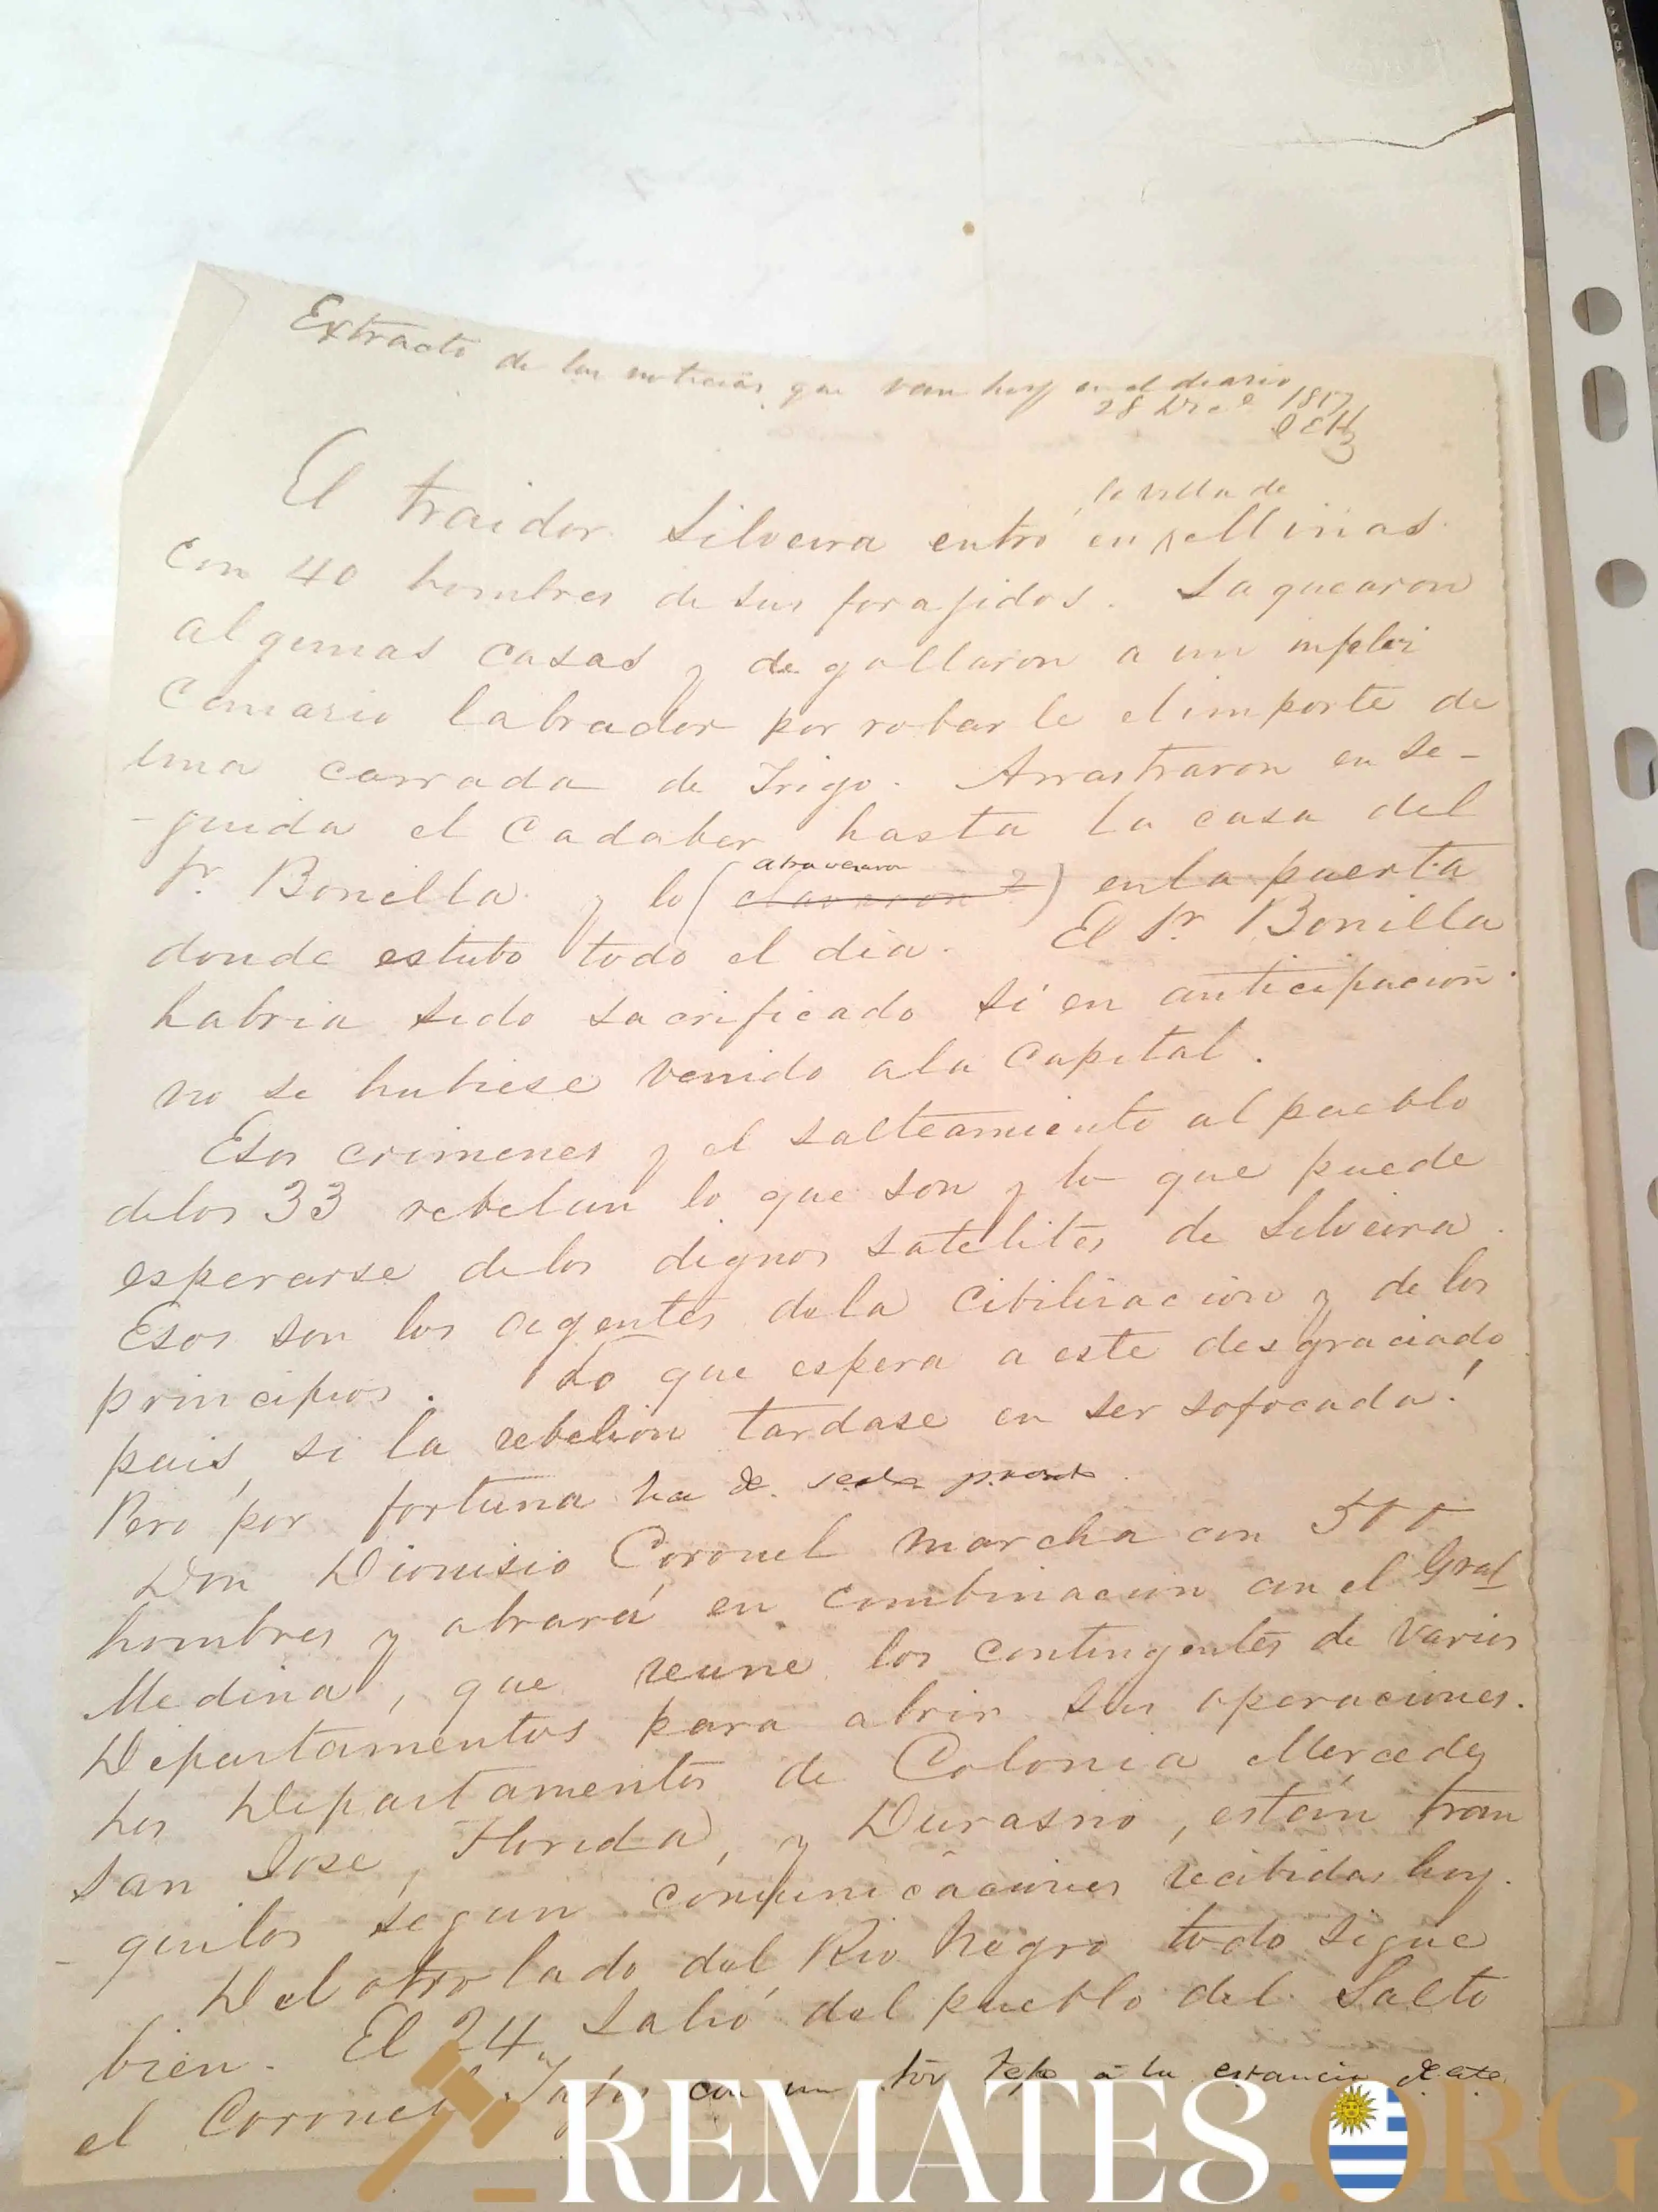 Extracto de las noticias que van hoy en el diario
28 Dice 1857
El traidor Silveira entró en la villa de Minas
Con 40 hombres de sus forajidos. Saquearon
algunas casas y degollaron a un infeliz
Canario labrador por robarle el importe de
una carrada de Trigo. Arrastraron en se-
-guida el Cadaber hasta la casa del
Sr. Bonilla y lo (atravesaron clavaron?) en la puerta
donde estubo todo el dia. El Sr. Bonilla
habria sido sacrificado si en anticipacion
no se hubiese venido a la Capital.
Esos crimenes y el salteamiento al pueblo
delos 33 rebelan lo que son y lo que puede
esperarse delos dignos satelites de Silveira.
Esos son los agentes dela Cibilizacion y de los
principios. Lo que espera a este desgraciado
pais, si la rebelion tardase en ser sofocada!
Pero por fortuna ha de serlo pronto.
Don Dionisio Coronel marcha con 500
hombres y obrará en combinacion con el Gral
Medina, que reune los contingentes de varios
Departamentos para abrir sus operaciones.
Los Departamentos de Colonia Mercedes
San Jose, Florida, y Durasno, están tran
-quilos segun comunicaciones recibidas hoy.
Del otro lado del Rio Negro todo sigue
bien. El 24 salió del pueblo del Salto
el Coronel con un a la estancia de este
REMATES.ORG